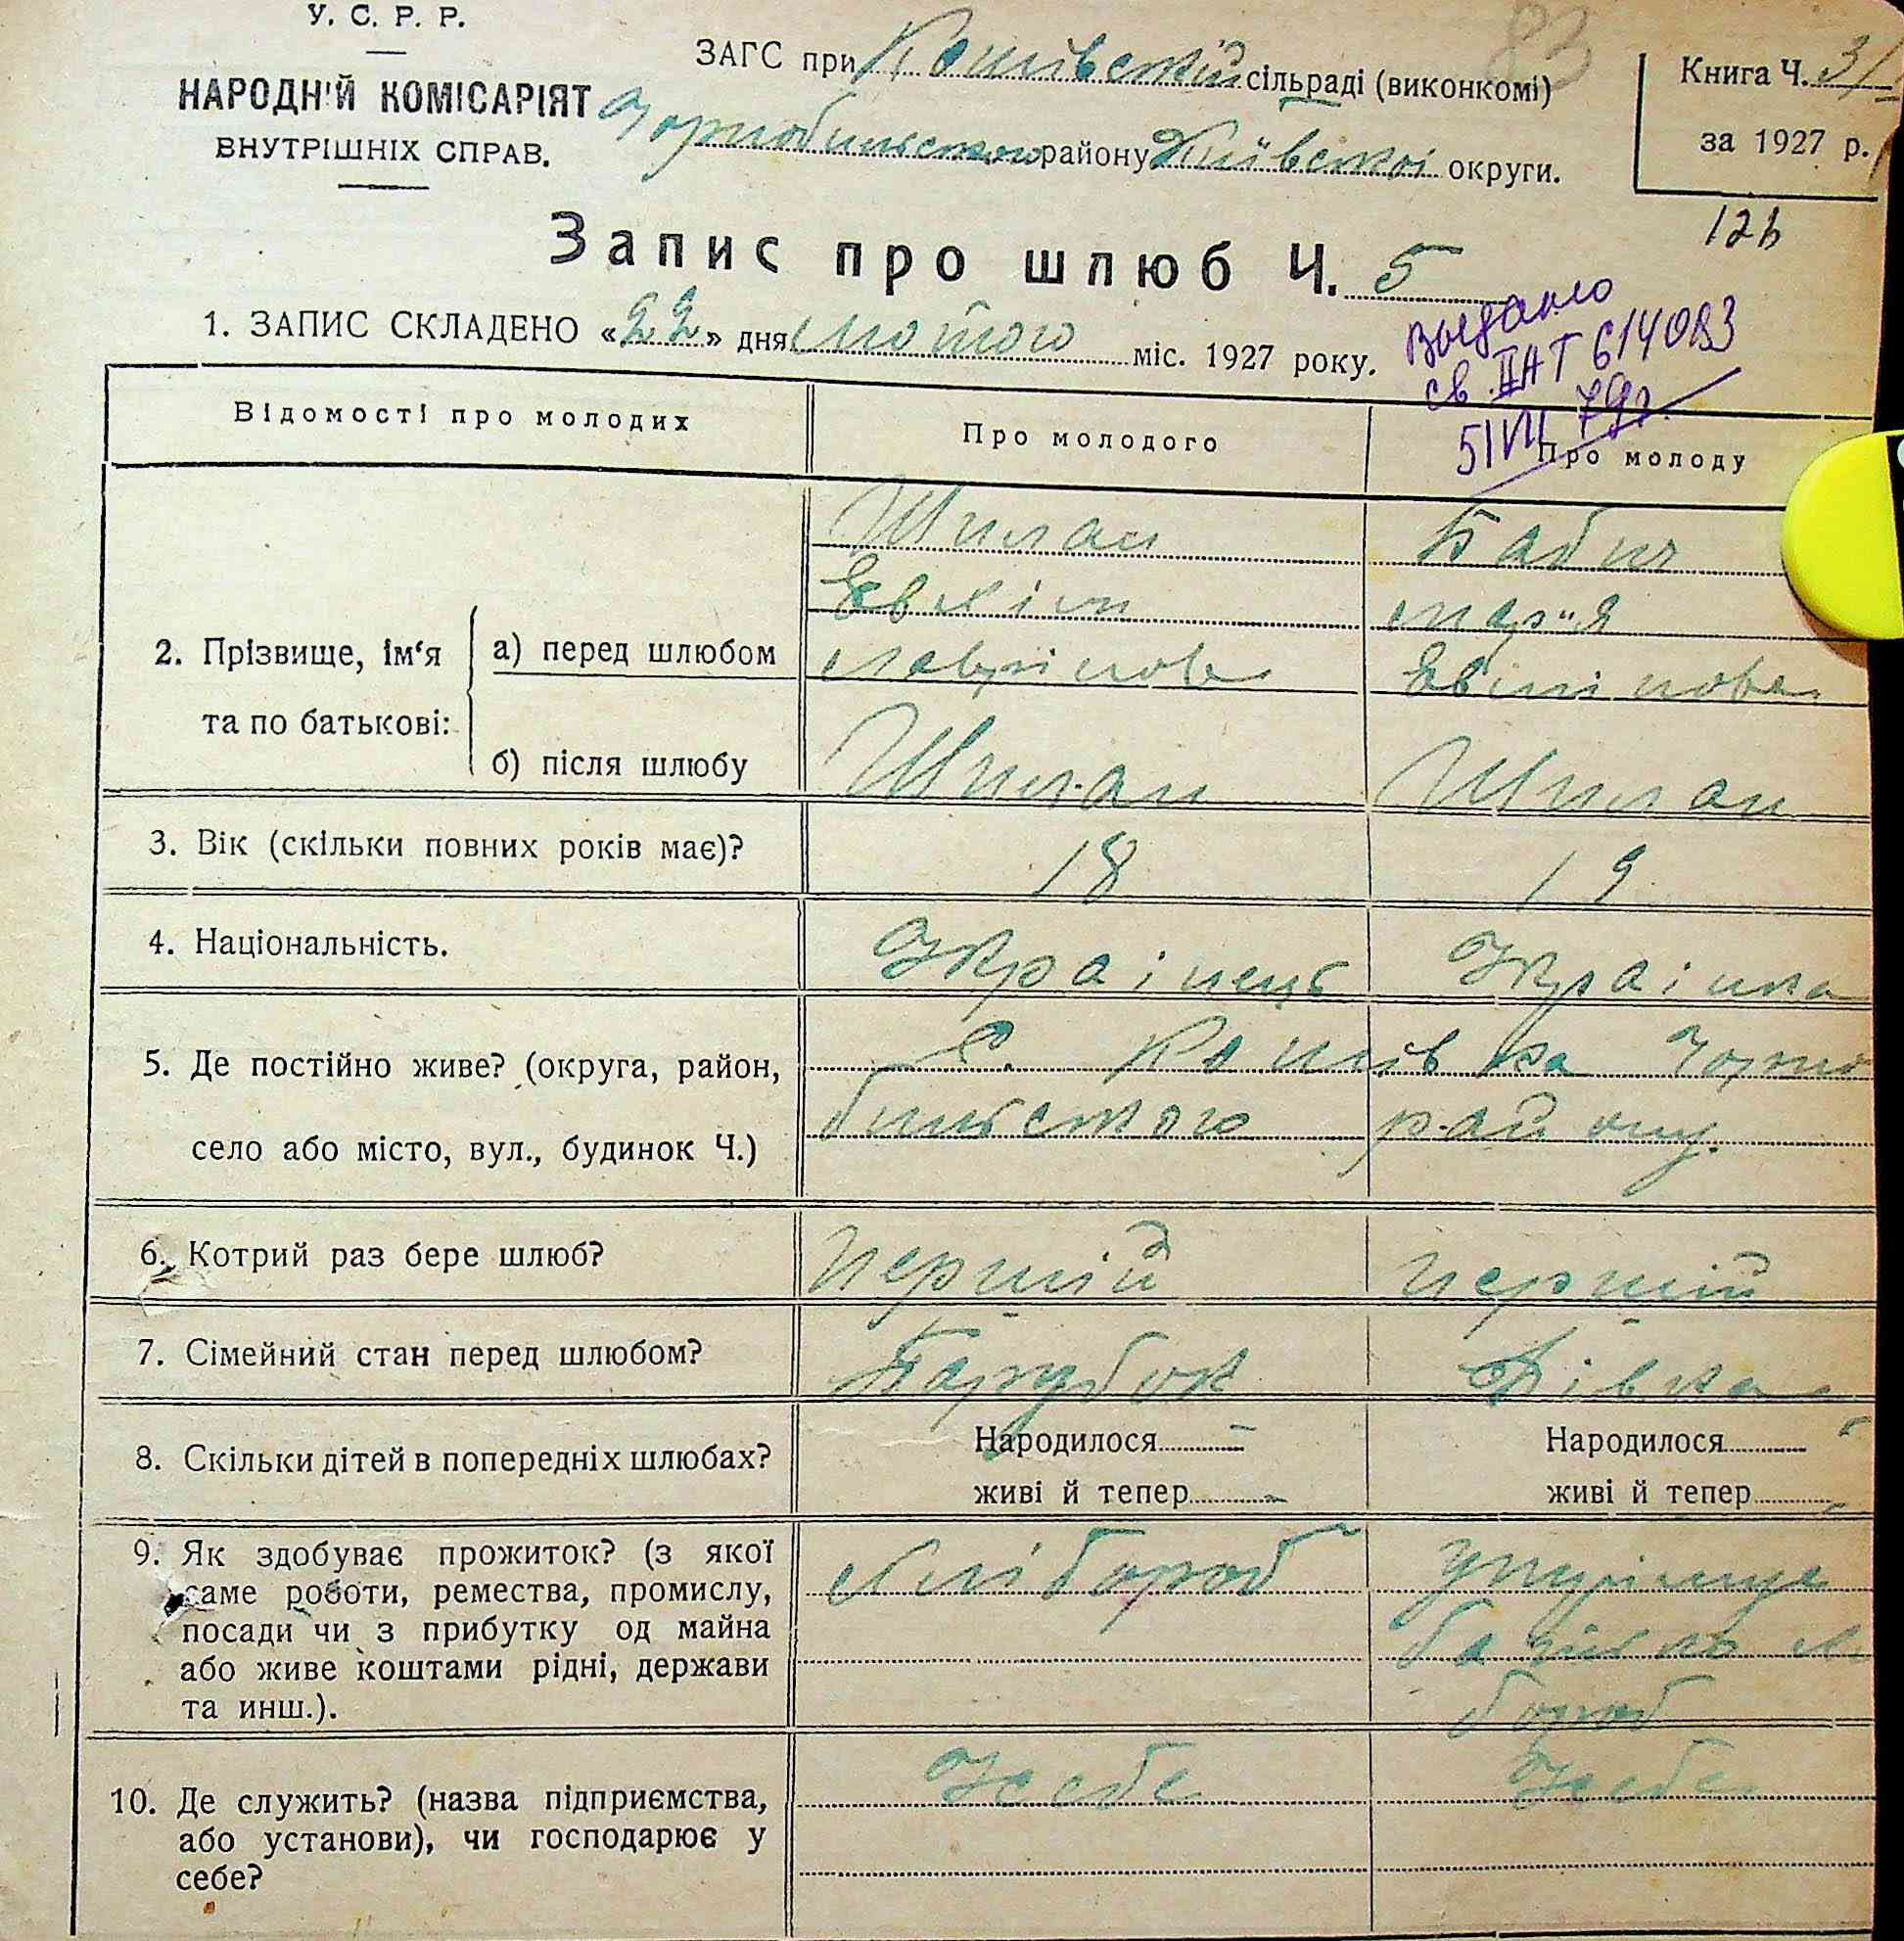 У. С. Р. Р.
НАРОДНІЙ КОМІСАРІЯТ
ВНУТРІШНІХ СПРАВ.
ЗАГС при Кошівській сільраді (виконкомі)
Чорнобильського району Київської округи.
83
Книга Ч. 31
за 1927 р.
Запис про шлюб Ч. 5
1. ЗАПИС СКЛАДЕНО «22» дня лютого міс. 1927 року.
Выдано
св. II АТ 614093
5/VII 79г.
Відомості про молодих
Про молодого
Про молоду
2. Прізвище, ім'я та по батькові:
а) перед шлюбом
Шилан
Бабич
Евхім
Марія
Лаврінов
б) після шлюбу
Шилан
Шилан
3. Вік (скільки повних років має)?
18
19
4. Національність.
Украінець
Украінка
5. Де постійно живе? (округа, район,
село або місто, вул., будинок Ч.)
С. Кошівка Чорно
бильського району.
6. Котрий раз бере шлюб?
перший
перший
7. Сімейний стан перед шлюбом?
Парубок
Дівка
8. Скільки дітей в попередніх шлюбах?
Народилося –
живі й тепер –
Народилося
живі й тепер
9. Як здобуває прожиток? (з якої
саме роботи, ремества, промислу,
посади чи з прибутку од майна
або живе коштами рідні, держави
та инш.).
Хлібороб
10. Де служить? (назва підприємства,
або установи), чи господарює у
себе?
У себе
У себе